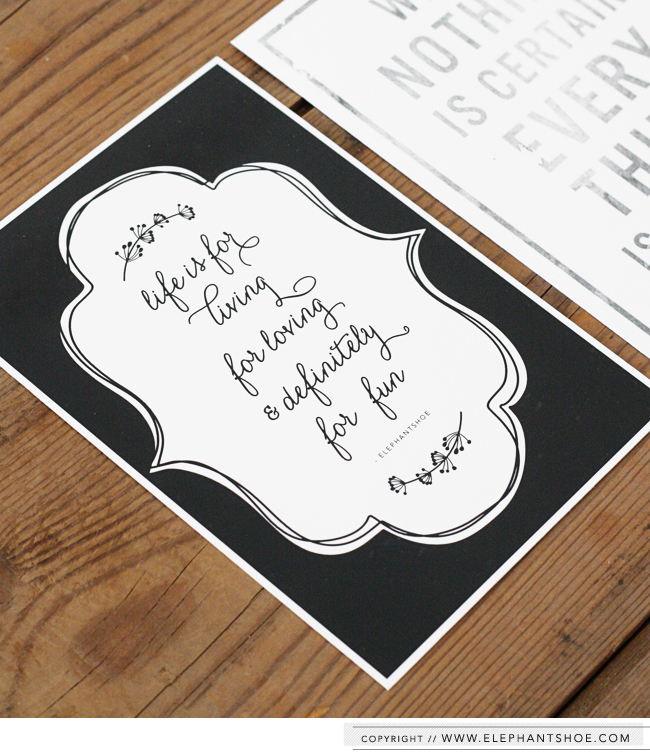 life is for
living
for loving
& definitely
for fun
- ELEPHANTSHOE
IS CERTAIN
EVERY
COPYRIGHT // WWW.ELEPHANTSHOE.COM